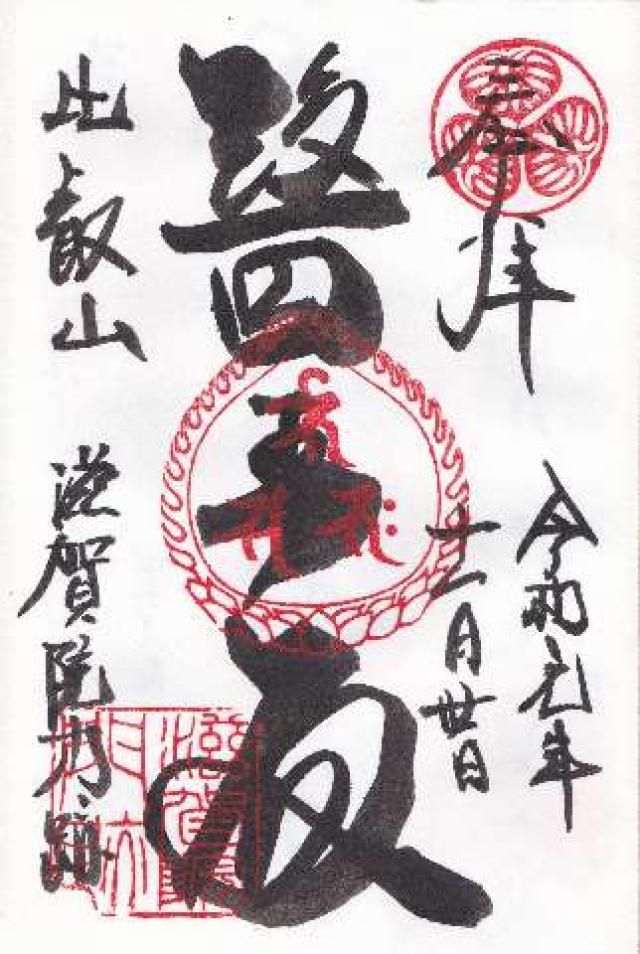 奉拝
令和元年
十一月廿日
醫王殿
比叡山
滋賀院門跡